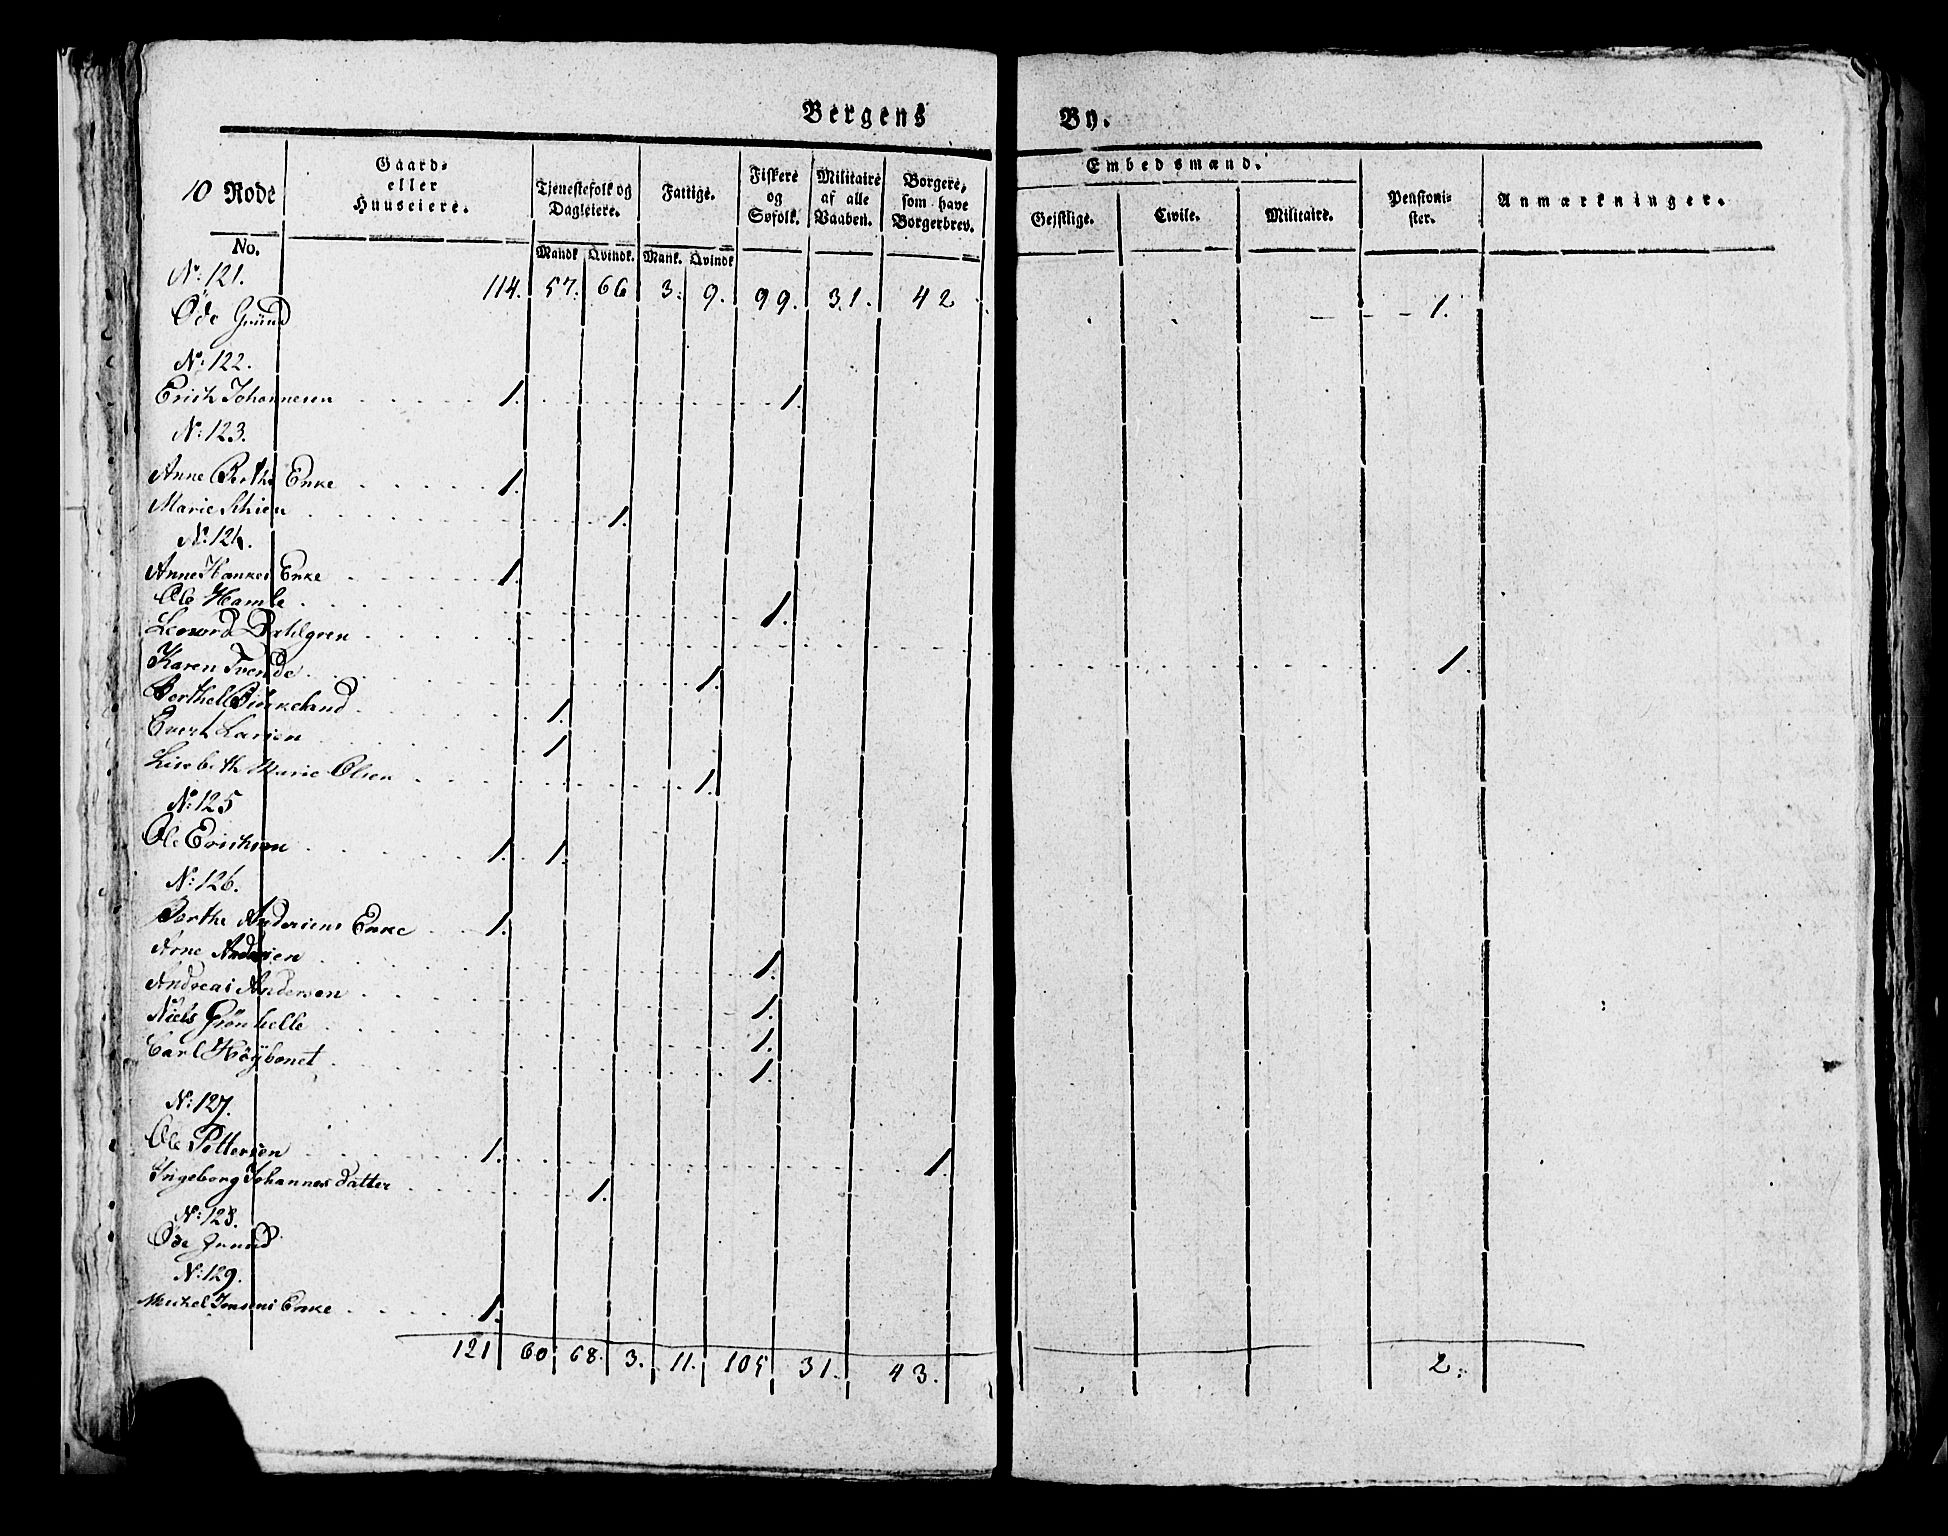 Bergens By.
10 Rode
No.
Gaard-
eller
Huuseiere.
Tjenestefolk og
Dagleiere.
Mandk Qvindk.
Fattige.
Mank. Qvindk
Fiskere
og
Søfolk.
Militaire
af alle
Vaaben.
Borgere,
som have
Borgerbrev.
Embedsmænd.
Gejstlige. Civile. Militaire.
Pensioni-
ster.
Anmærkninger.
N: 121.
114. 57. 66 3. 9. 99. 31. 42 1.
Öde Gründ
N: 122.
Erich Johannesen 1. 1.
N: 123.
Anne Berthe Enke 1.
Marie Schien 1.
N: 124.
Anne Enke 1.
Ole Hamle 1.
Leonord Dahlgren 1.
Karen Trende 1.
Berthel Birkeland 1.
Evert Larsen 1.
Lisebeth Marie Olsen 1.
N: 125
Ole Erichsen 1. 1.
N: 126.
Berthe Andersens Enke 1.
Arne Andersen 1.
Andreas Andersen 1.
Niels Grönhelle 1.
Carl 1.
N: 127.
Ole Pettersen 1. 1.
Ingeborg Johannesdatter 1.
N: 128.
Öde Grund
N: 129.
Michel Enke 1.
121 60 68. 3. 11. 105 31. 43. 2.